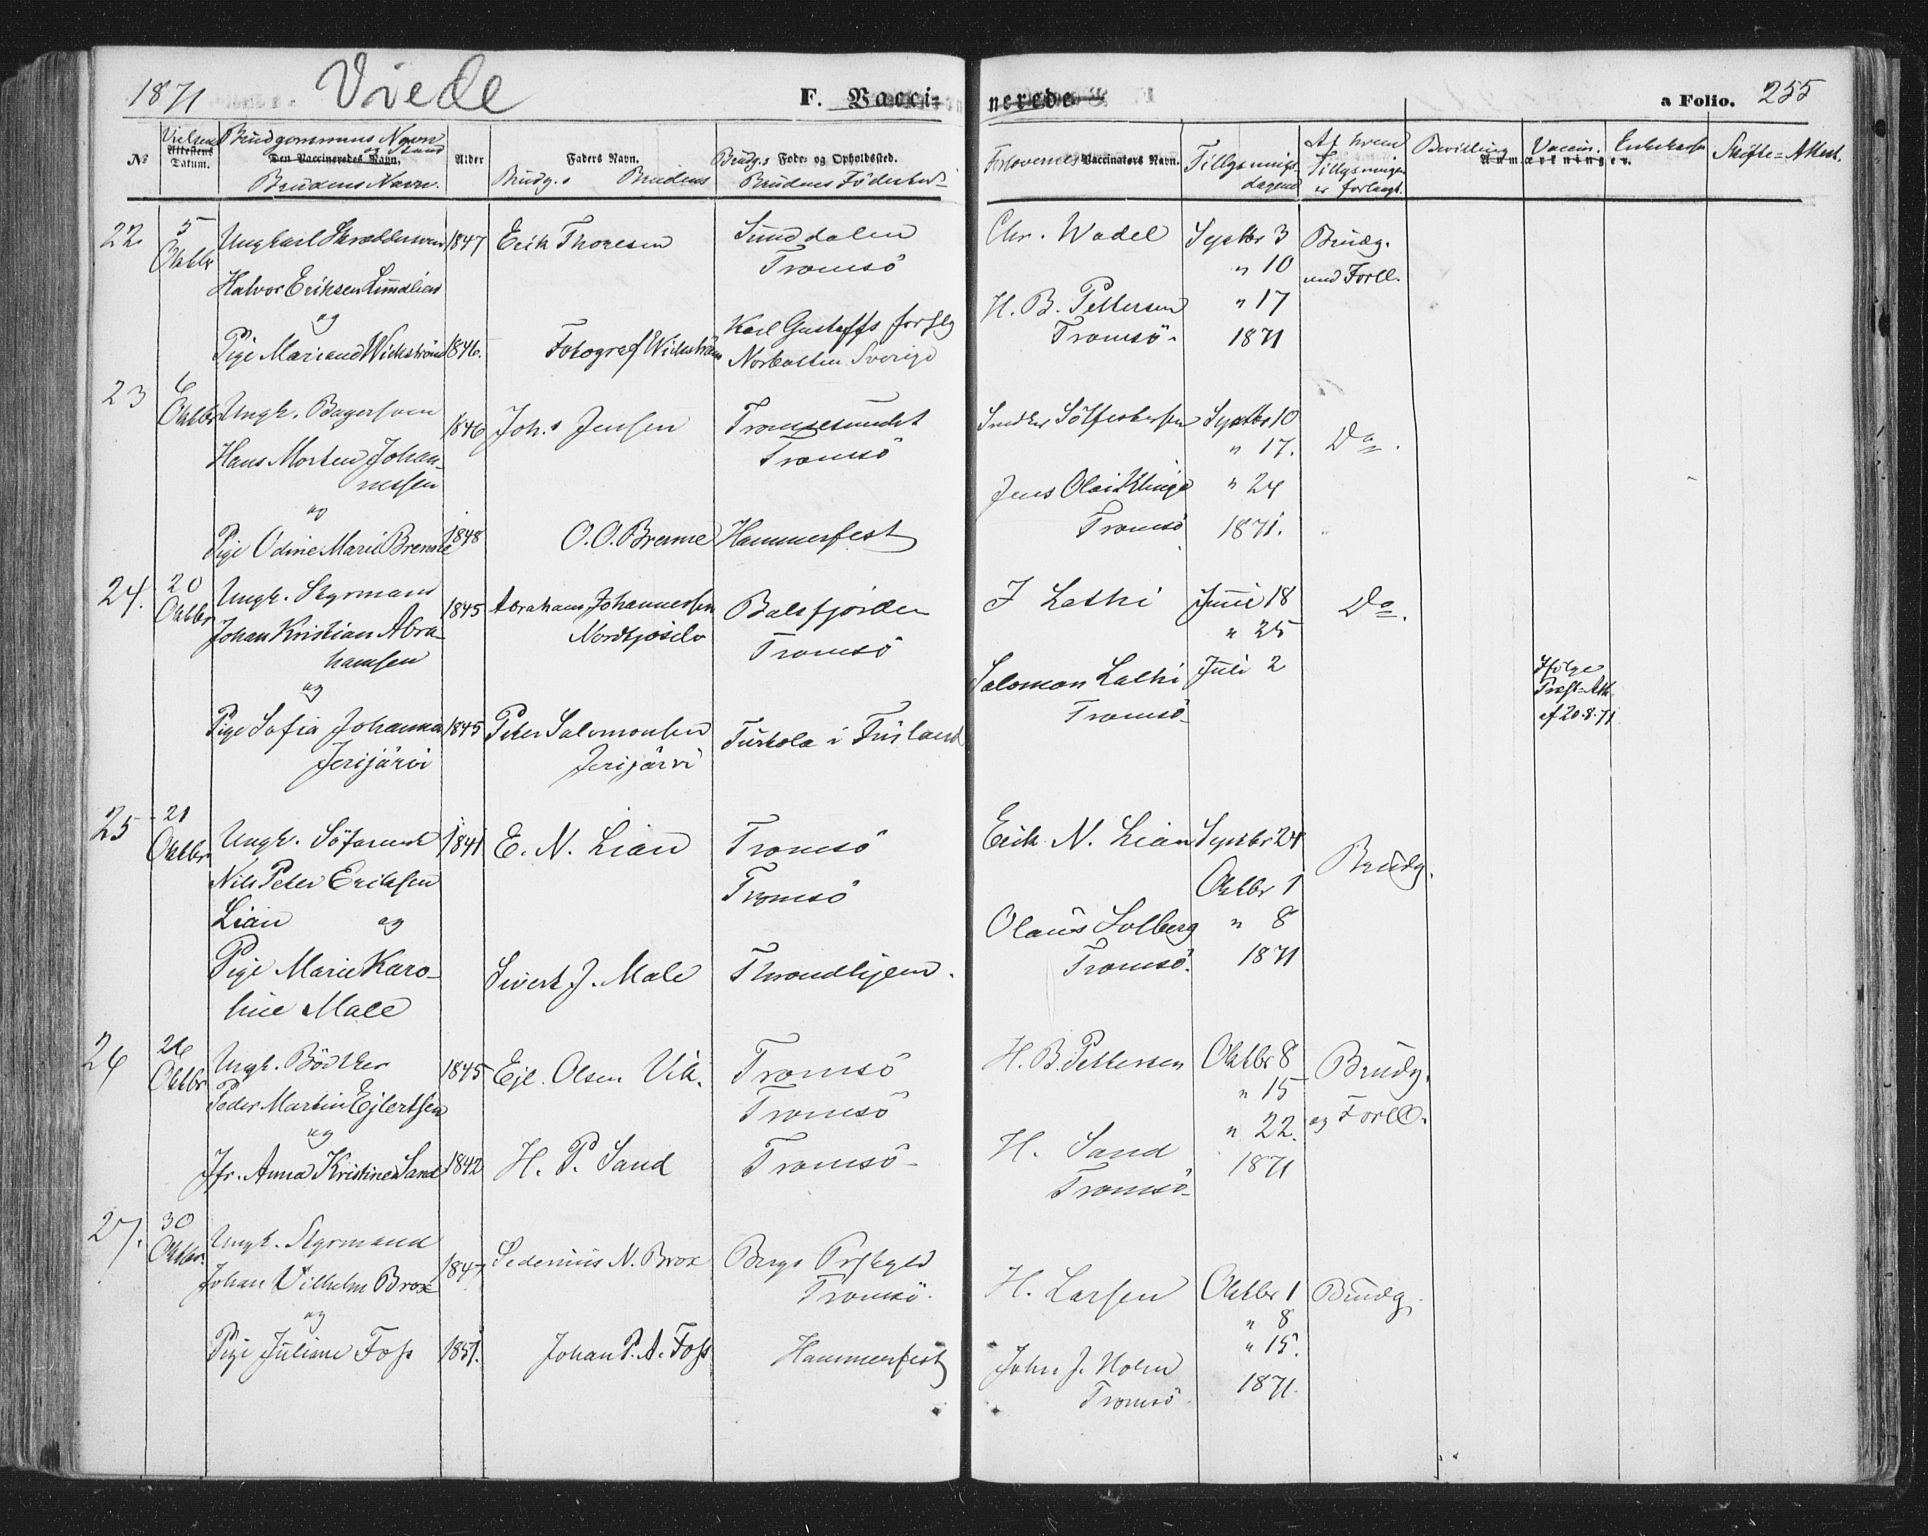 1871 Viede F. Vacci- nerede a Folio. 255
№ Vielses Attestens Datum. Brudgommens Navn og Stand Den Vaccineredes Navn. Brudens Navn. Alder Faders Navn. Brudg.s Brudens Brudg.s Føde- og Opholdssted. Brudens Födested
Forlovernes Vaccinators Navn. Tillysnings dagene Af hvem Tillysningen er forlangt. Bevilling Anmærkninger. Vaccin. Enkekasse Skifte-Attest.
22. 5 Oktbr Ungkarl Skræddersven 1847 Erik Thoresen Sunddalen Chr. Wadel Septbr 3 Brudg.
Tromsö " 10 und Forll.
Halvor Eriksen Sunddlien H. B. Pettersen " 17
og Karl Gustaffs forslg Tromsö. 1871
Pige Mariane Wickström 1846. Fotograf Wickström Norbotten Sverige
23 6 Oktbr Ungk. Bagersven 1846 Joh.s Jensen Tromsesundet Septbr 10 Do.
Hans Morten Johan- Tromsö " 17.
nessen Jens Olai Klinge " 24
og Tromsö 1871.
Pige Odine Marie Bremse 1848 O. O. Breme Hammerfest
24. 20 Oktbr Ungk. Styrmand 1845 Abraham Johannessen Balsfjorden J Lathi Juni 18 Do.
Johan Kristian Abra- Nordkjoselv Tromsö " 25
hamsen Salomon Lathi Juli 2 Ifölge
og Tromsö Præst-Att.
Pige Sofia Johanna 1845 Peter Salomonsen Turtola i Finland af 20.8.71
Jerijärvi Jerijärvi
25 21 Oktbr Ungk. 1841 E. N. Lian Tromsö Erik N. Lian Septbr 24 Brudg.
Nils Peter Eriksen Tromsö Oktbr 1
Lian og Olaus Solberg " 8
Pige Marie Karo- Sivert J. Male Throndhjem. Tromsö. 1871
line Male
26 26 Oktbr Ungk. Bödker 1845 Ejl. Olsen Vik. Tromsö H. B. Pettersen Oktbr 8 Brudg.
Peder Martin Ejlertsen Tromsö " 15 og Forll.
og " 22.
Jfr. Anna Kristine Sand 1842 H. P. Sand Tromsö H. Sand 1871
Tromsö
27. 30 Oktbr. Ungk. Styrmand 1847 Sedenius N. Brox Bergs Prstgjld H. Larsen Oktbr 1 Brudg.
Johan Vilhelm Brox Tromsö. " 8
og " 15.
Pige Juliane Foss 1851. Johan P. A. Foss Hammerfest John J. Holm 1871.
Tromsö.